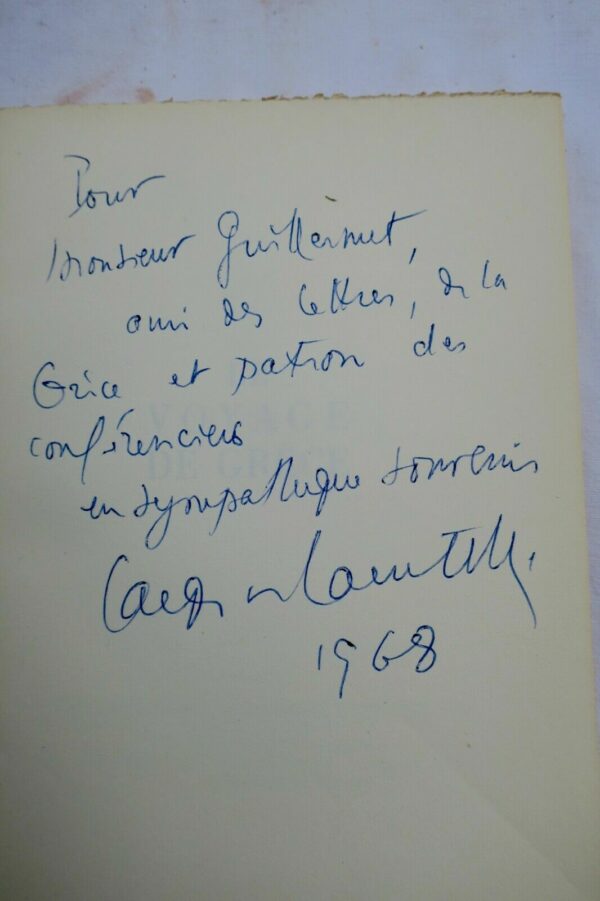 Pour
Monsieur Guillermut,
ami des lettres, de la
Grèce et patron des
conférenciers
en sympathique souvenir
1968
VOYAGE
DE GRÈCE